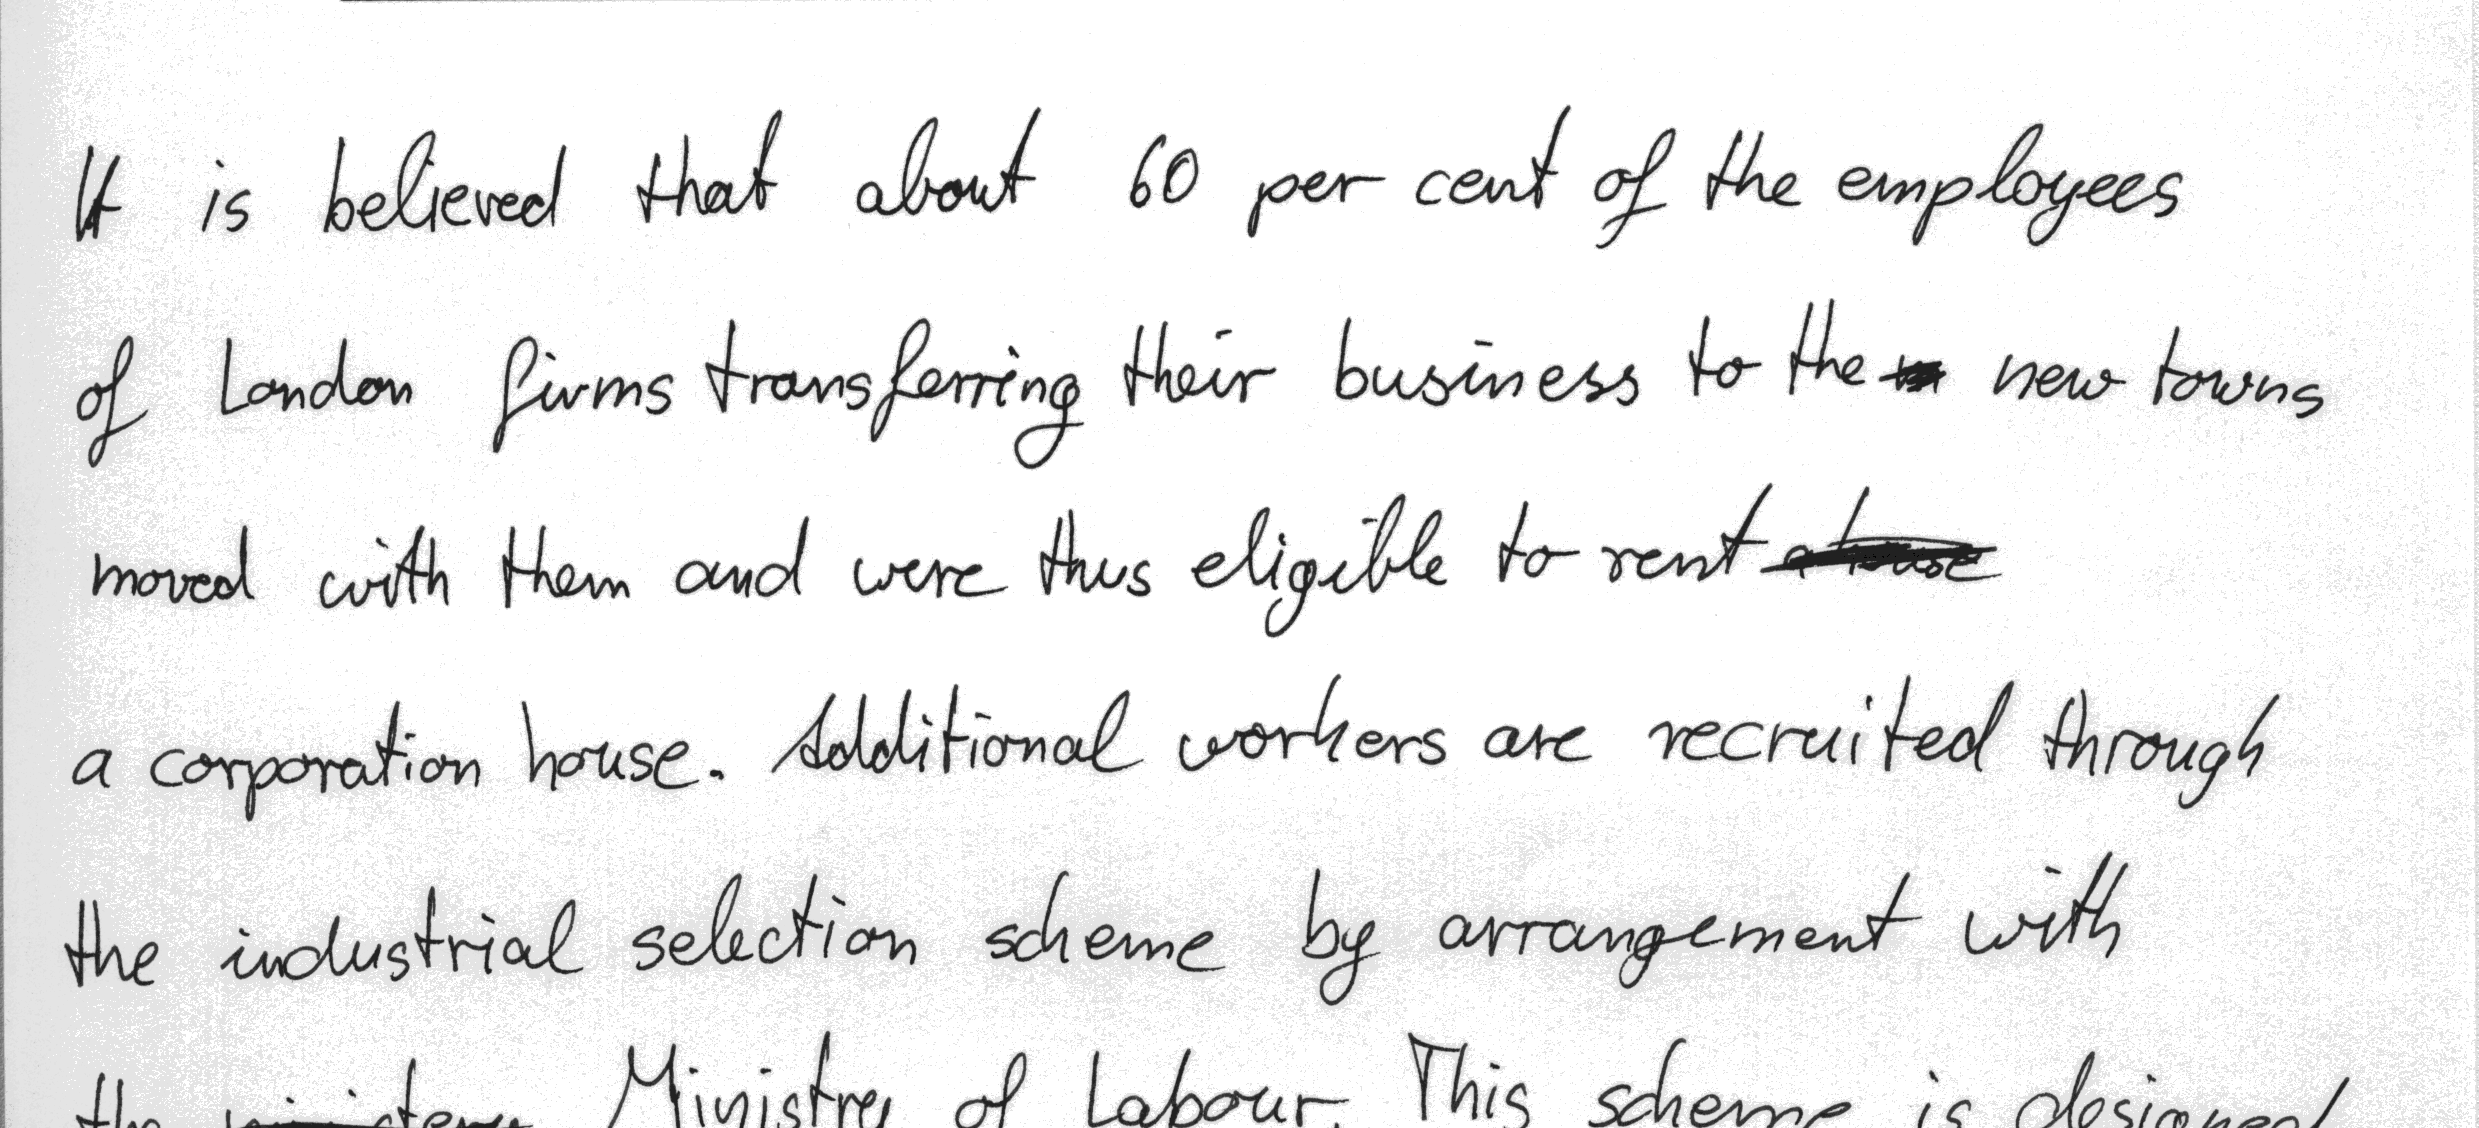 It is believed that about 60 per cent of the employees
of London firms transferring their business to the new towns
moved with them and were thus eligible to rent
a corporation house. Additional workers are recruited through
the industrial selection scheme by arrangement with
the Ministry of Labour. This scheme is designed